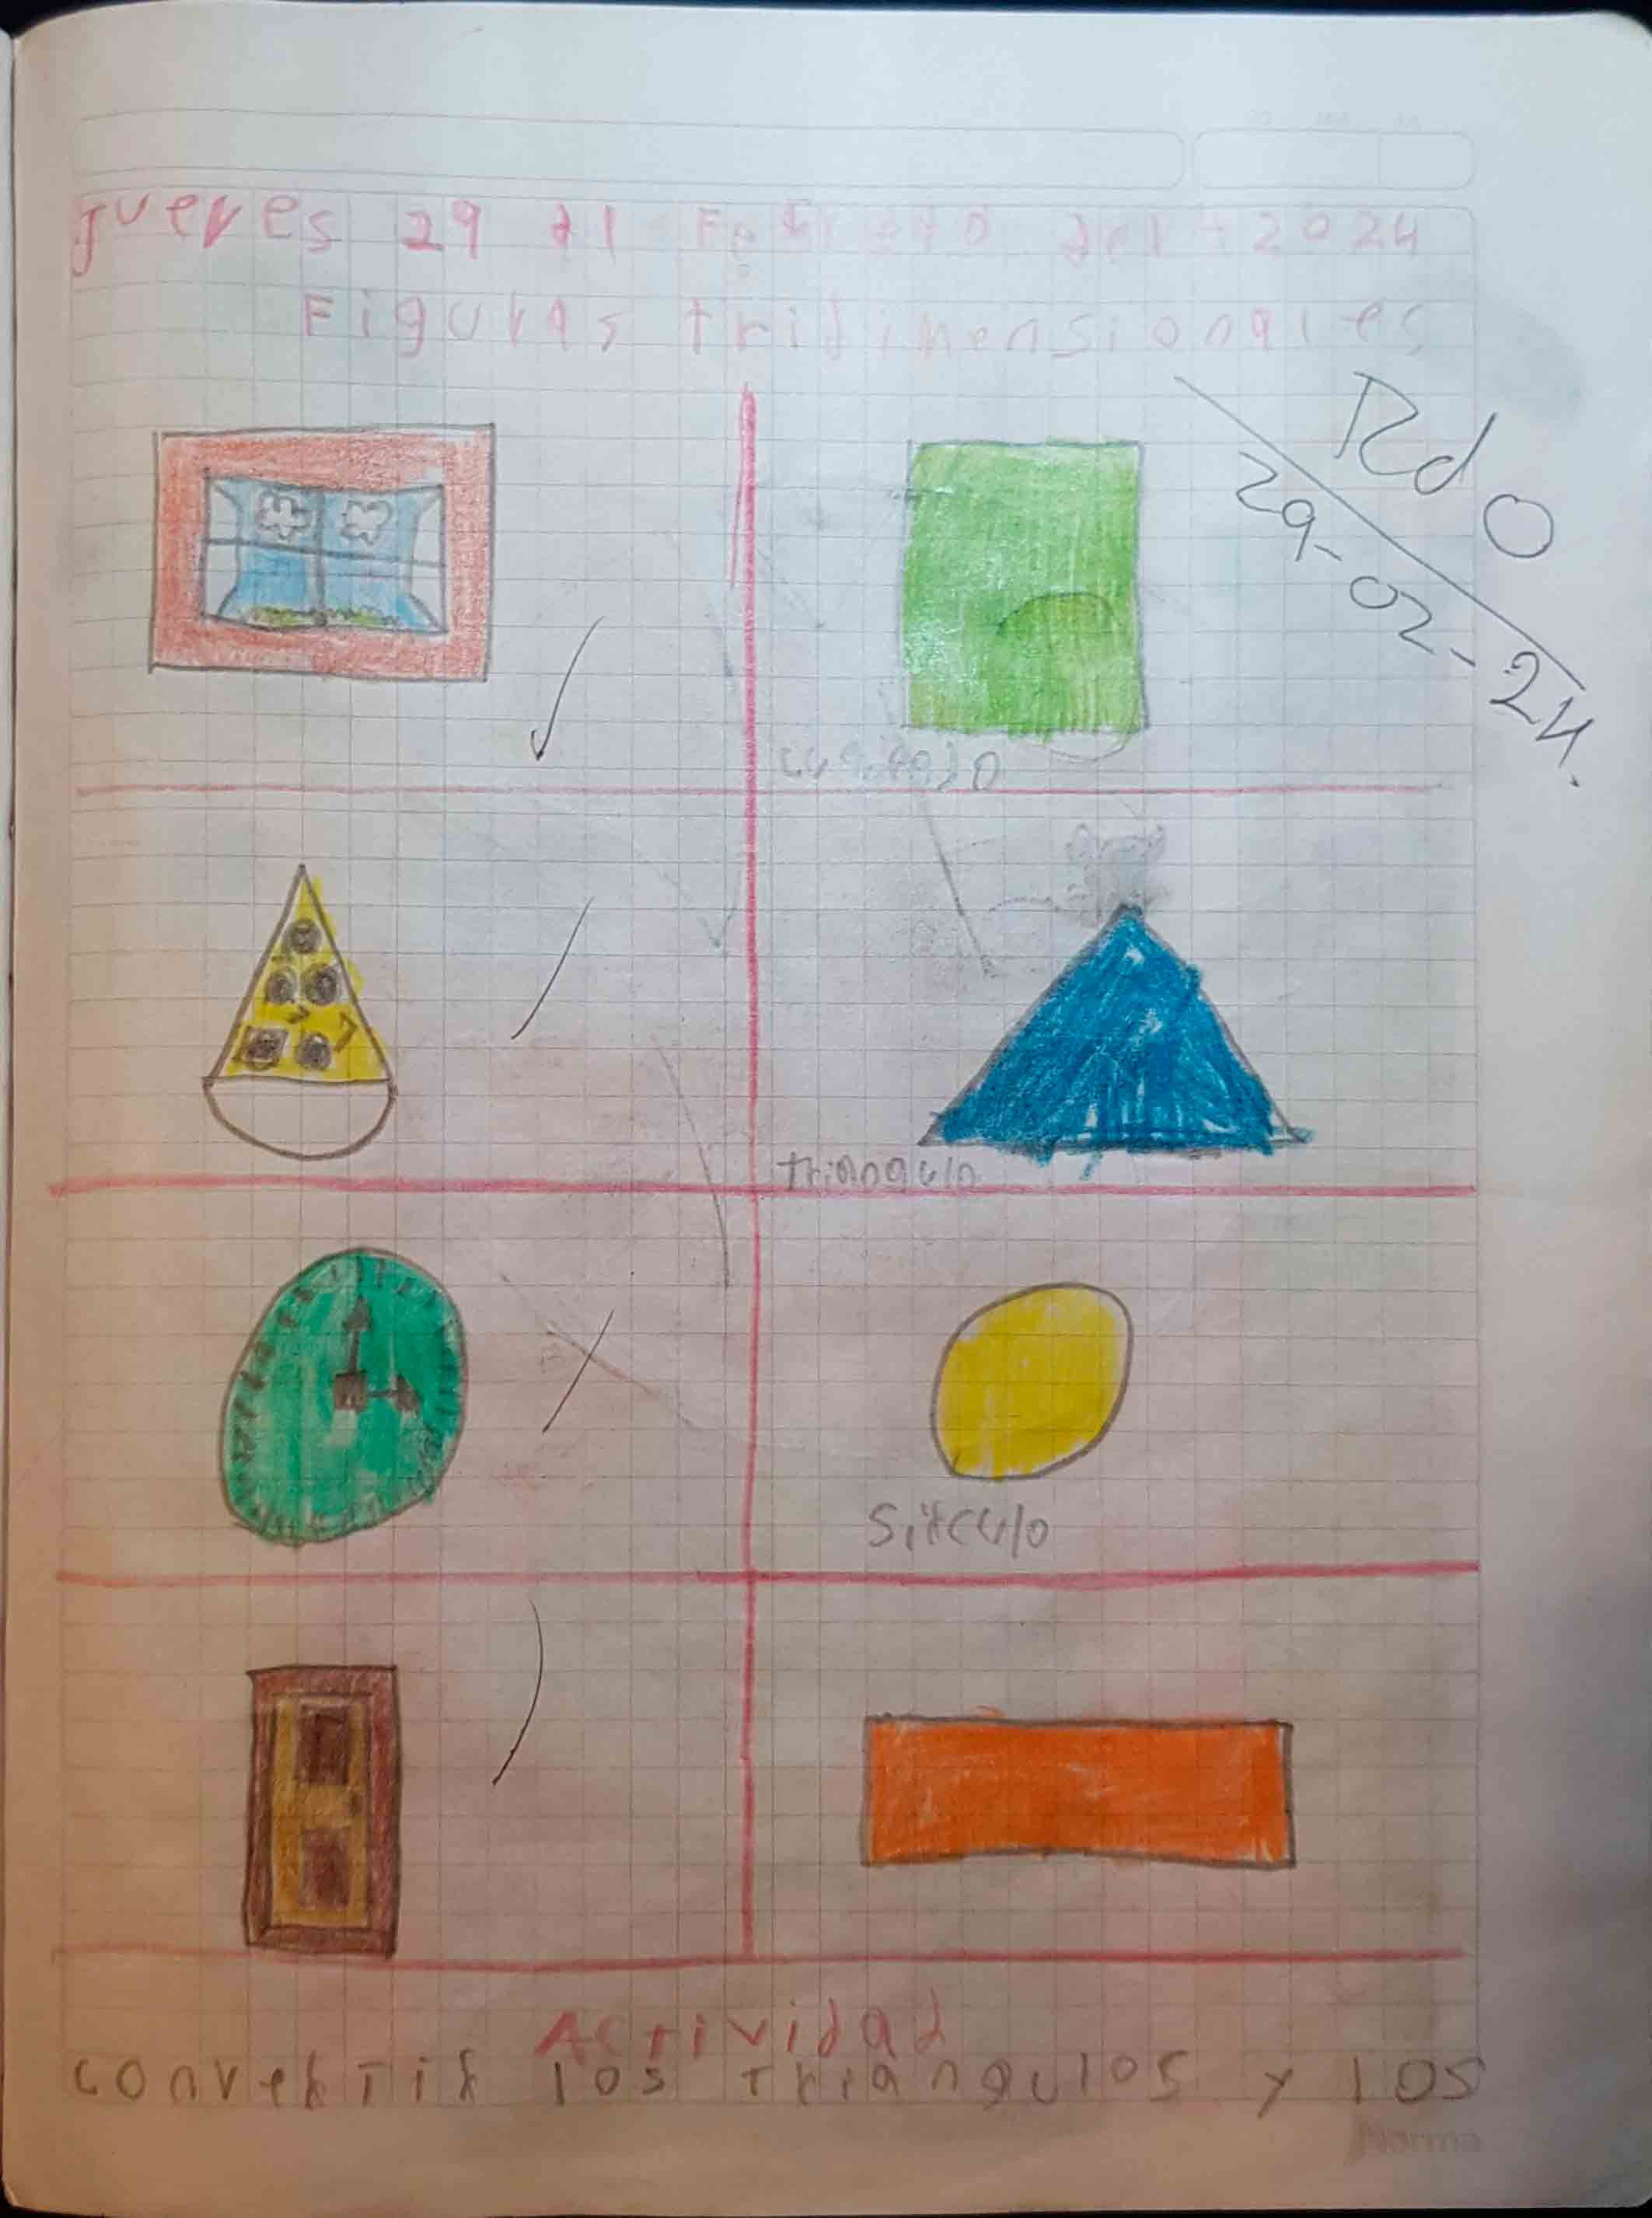 Jueves 29 d1 Febrero del 2024
Figuras tridimensionales
Rdo
29-02-24.
cuadrado
triangulo
Sirculo
Actividad
convertir los triangulos y los
Norma